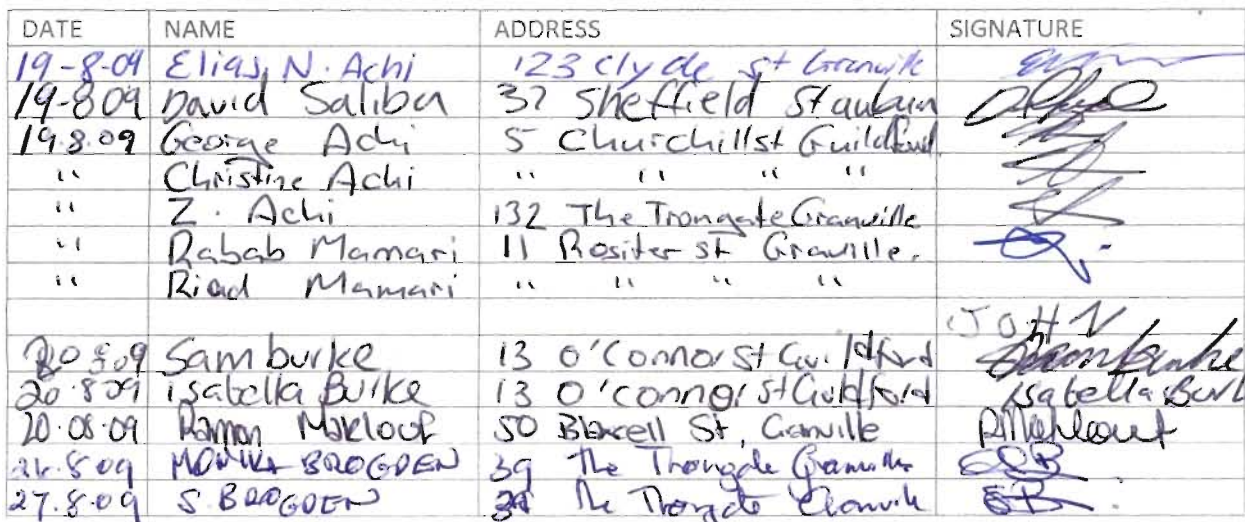 DATE NAME ADDRESS SIGNATURE
19-8-09 Elias N. Achi 123 Clyde st Granville
19-8 09 David Saliba 37 Sheffield St auburn
19.8.09 George Achi 5 Churchill st Guildford
" Christine Achi " " " "
" Z. Achi 132 The Trongate Granville
" Rabab Mamari 11 Rositer st Granville.
" Riad Mamari " " " "
JOHN
20 8.09 Sam burke 13 O'Connor St Guildford Sam burke
20.8 09 isabella Burke 13 O'connor st Guildford isabella Burk
20.08.09 Ramon Maklouf 50 Blaxcell St, Granville RMaklouf
26.8.09 MONIKA BROGDEN 39 The Trongate Granville
27.8.09 S. BROGDEN 39 The Trongate Granville SB